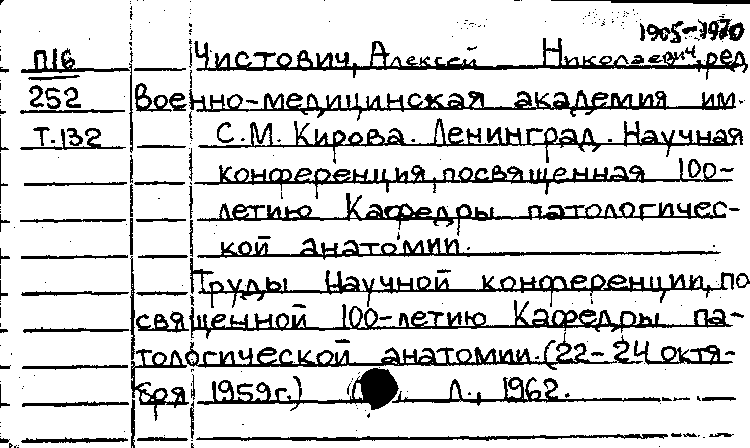 1905-1970
П16 Чистович, Алексей Николаевич, ред
252 Военно-медицинская академия им.
Т.132 С.М. Кирова. Ленинград. Научная
конференция, посвященная 100-
летию Кафедры патологичес-
кой анатомии.
Труды Научной конференции, по
священной 100-летию Кафедры па-
тологической анатомии. (22-24 октя-
бря 1959г.) Л., 1962.